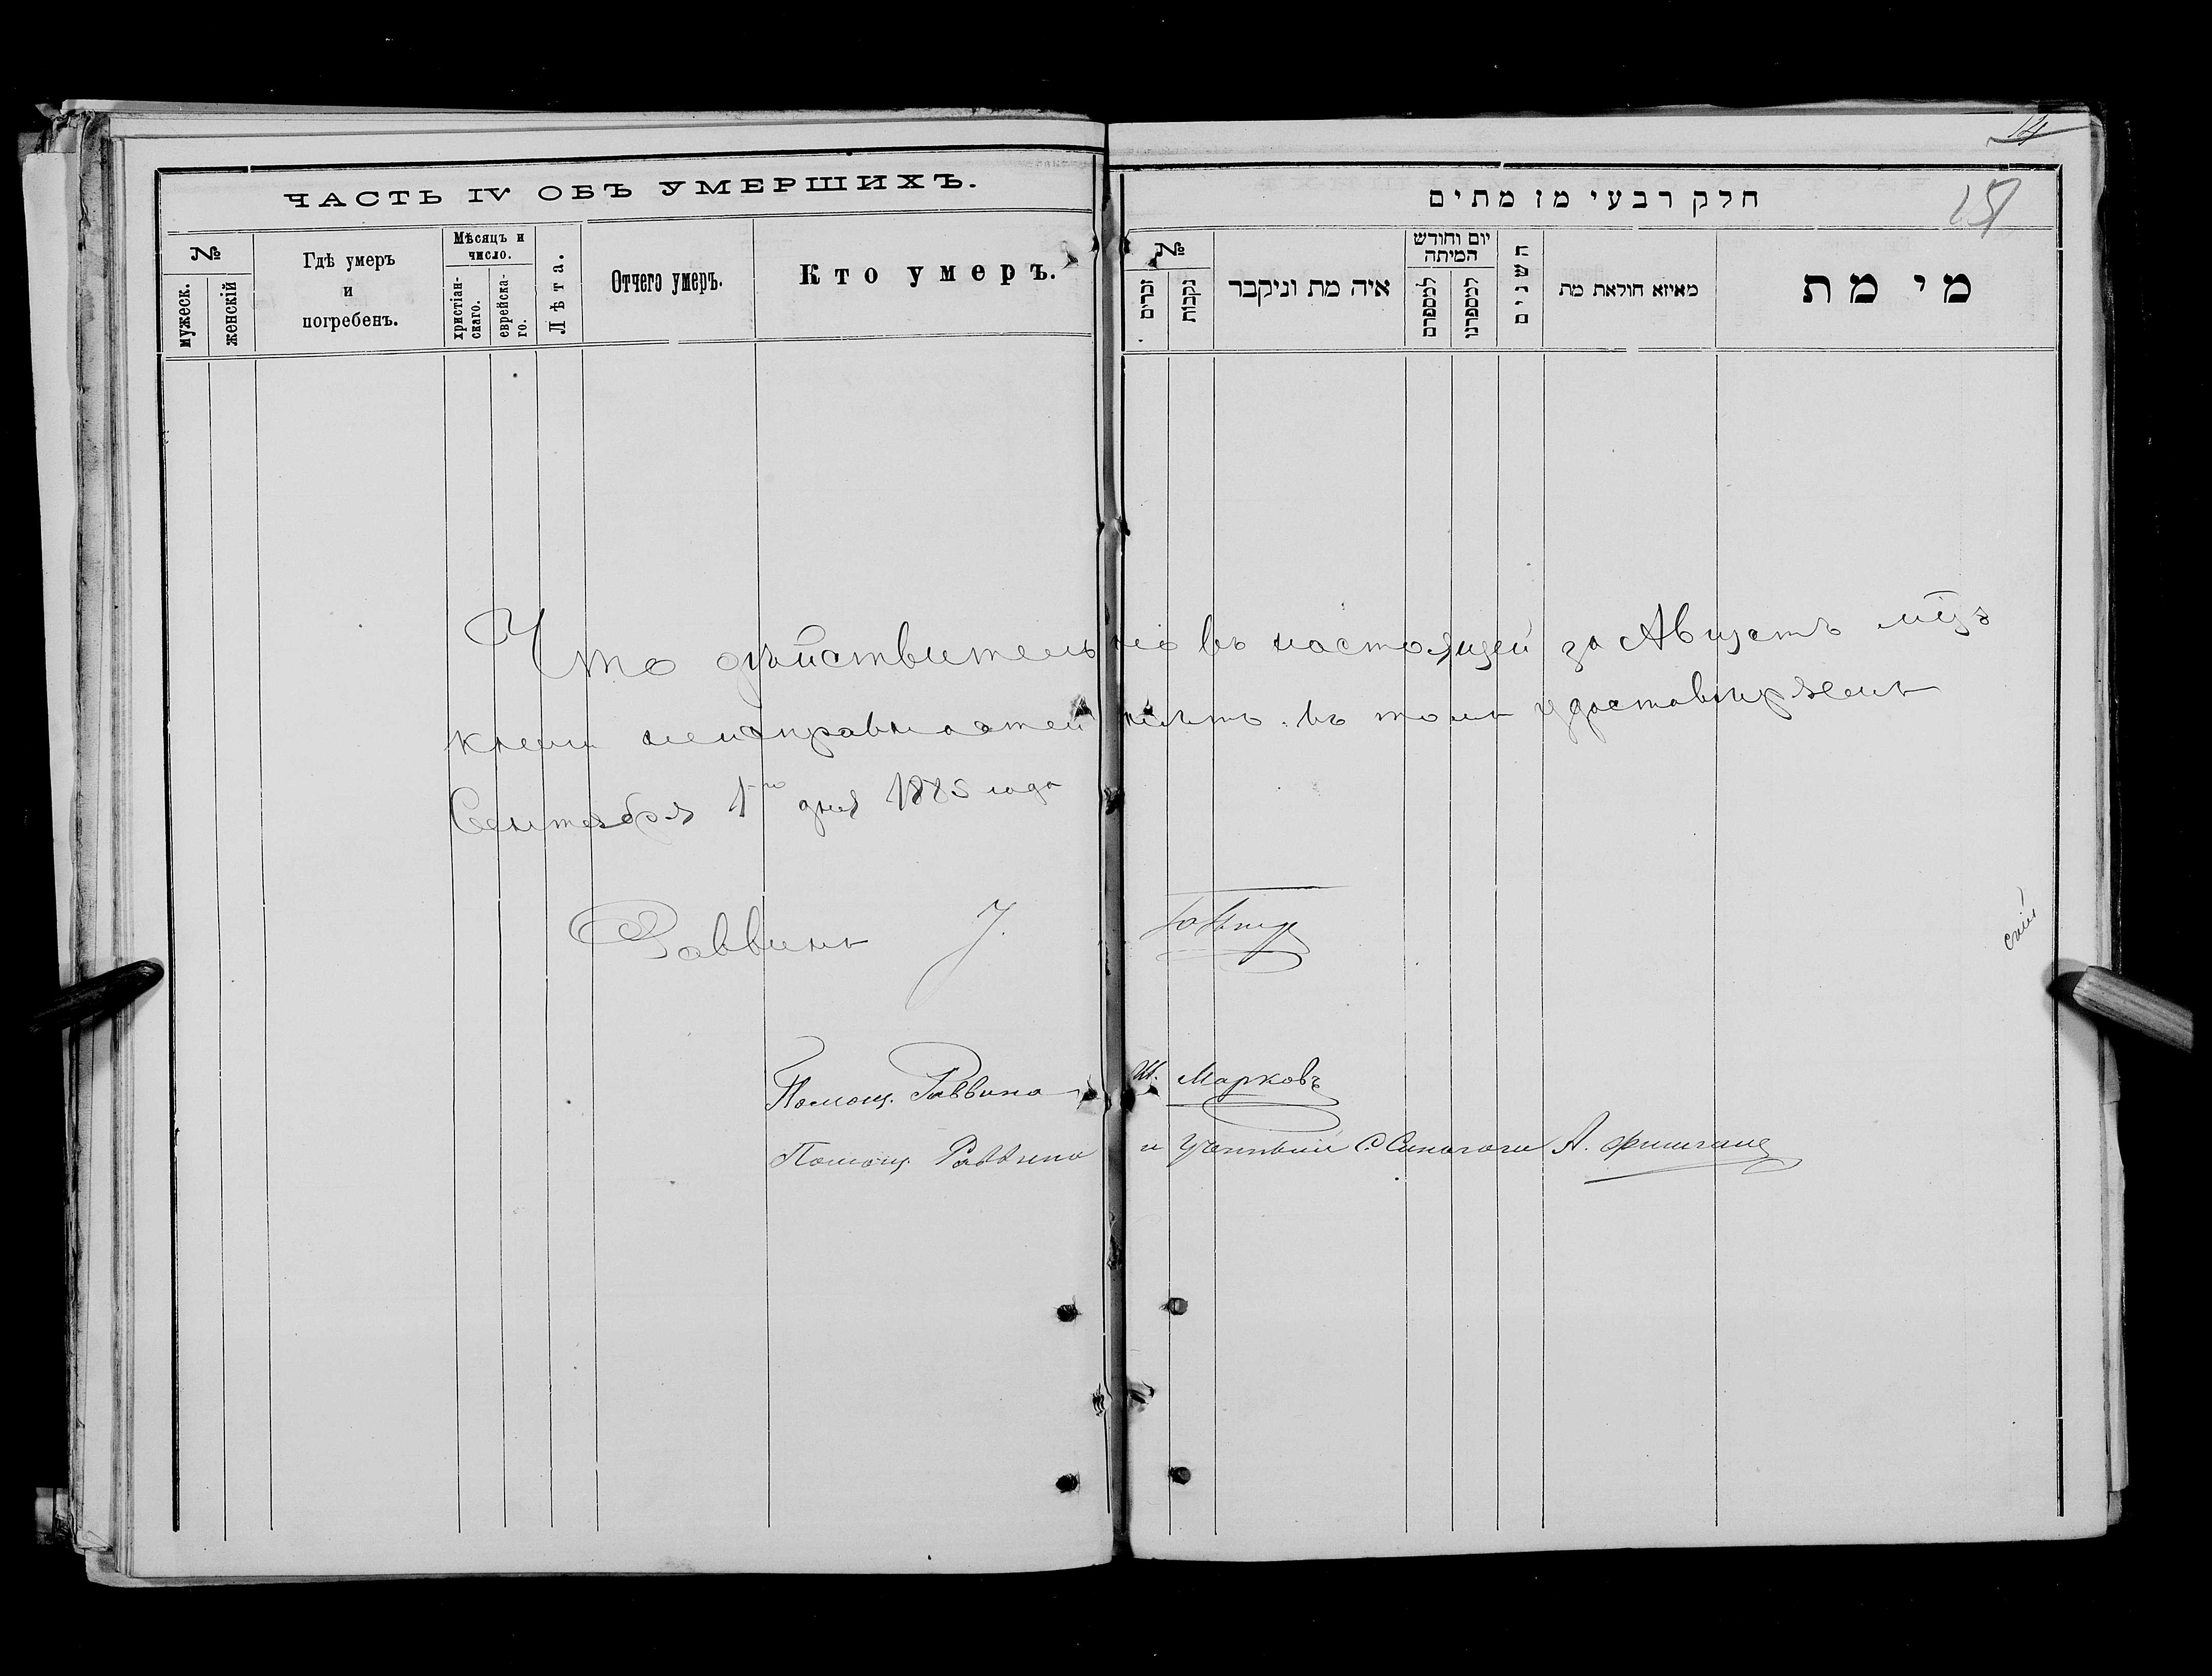 ЧАСТЬ IV ОБЪ УМЕРШИХЪ.
№
мужеск.
женскій
Гдѣ умеръ
и
погребенъ.
Мѣсяцъ и
число.
христіан-
скаго.
еврейска-
го.
Лѣта.
Отчего умеръ.
Кто умеръ.
14
חלק רבעי מז מתים
151
№
זכרים
נקבות
איה מת וניקבר
יום וחודש
המיתה
למספרם
למספרנו
השנים
מאיזא חולאת מת
מי מת
Что дѣйствительно въ настоящей за Августъ мцъ
книги неисправностей нѣтъ. въ томъ удостовѣряемъ
Сентября 1го дня 1885 года
Раввинъ
Помощ. Раввина Ш. Марковъ
Помощ. Раввина и Ученный С. Синагоги А.